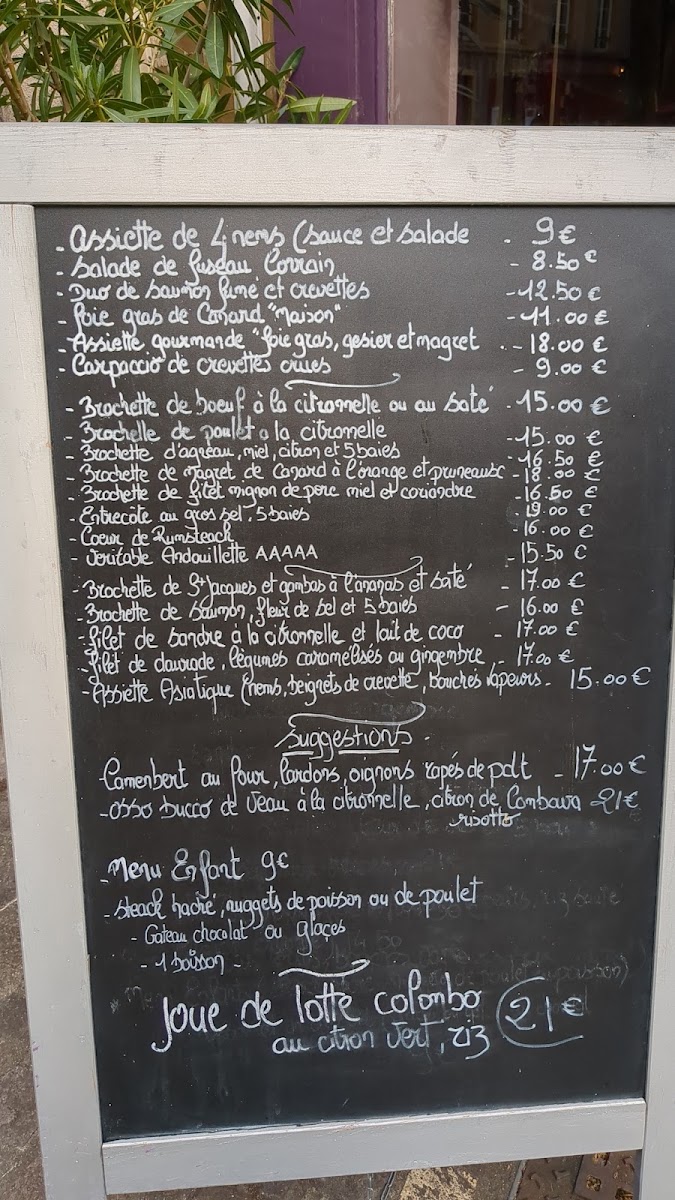 - Assiette de 4 nems (sauce et salade - 9€
- Salade de fuseau Lorrain - 8.50€
- Duo de saumon fumé et crevettes - 12.50 €
- foie gras de Canard "Maison" - 11.00 €
- Assiette gourmande "foie gras, gesier et magret - 18.00 €
- Carpaccio de crevettes crues - 9.00 €
- Brochette de boeuf à la citronnelle ou au saté - 15.00 €
- Brochette de poulet a la citronnelle - 15.00 €
- Brochette d'agneau, miel, citron et 5 baies - 16.50 €
- Brochette de magret de Canard à l'orange et pruneaux - 18.00 €
- Brochette de filet mignon de porc miel et coriandre - 16.50 €
- Entrecôte au gros sel, 5 baies - 19.00 €
- Coeur de Rumsteack - 16.00 €
- Veritable Andouillette AAAAA - 15.50 €
- Brochette de St Jacques et gambas à l'ananas et saté - 17.00 €
- Brochette de saumon, fleur de sel et 5 baies - 16.00 €
- filet de sandre à la citronnelle et lait de coco - 17.00 €
- filet de daurade, légumes caramélisés au gingembre, - 17.00 €
- Assiette Asiatique (nems, beignets de crevette, bouchés vapeurs - 15.00 €
Suggestions -
- Camenbert au four, lardons, oignons rapés de pdt - 17.00 €
- Osso bucco de Veau à la citronnelle, citron de Combava 21€
risotto
- Menu Enfant 9€
- Steack haché, nuggets de poisson ou de poulet
- Gateau chocolat ou glaçes
- 1 boisson -
Joue de lotte colombo 21€
au citron vert, riz